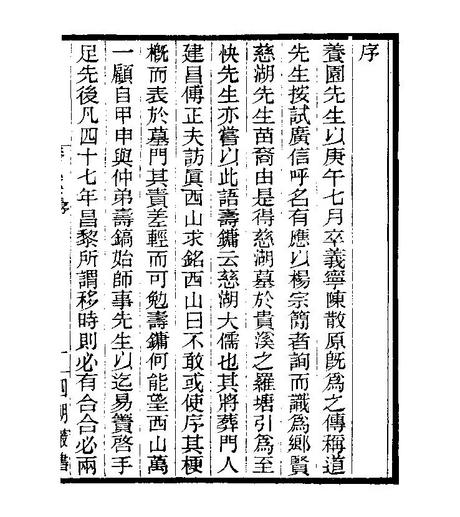 序
養園先生以庚午七月卒義寧陳散原旣爲之傳稱道
先生按試廣信呼名有應以楊宗簡者詢而識爲鄉賢
慈湖先生苗裔由是得慈湖墓於貴溪之羅塘引爲至
快先生亦嘗以此語壽鏞云慈湖大儒也其將葬門人
建昌傅正夫訪眞西山求銘西山曰不敢或使序其梗
槪而表於墓門其責差輕而可勉壽鏞何能望西山萬
一顧自甲申與仲弟壽鎬始師事先生以迄易簀啓手
足先後凡四十七年昌黎所謂移時則必有合合必兩
序
一
四明叢書